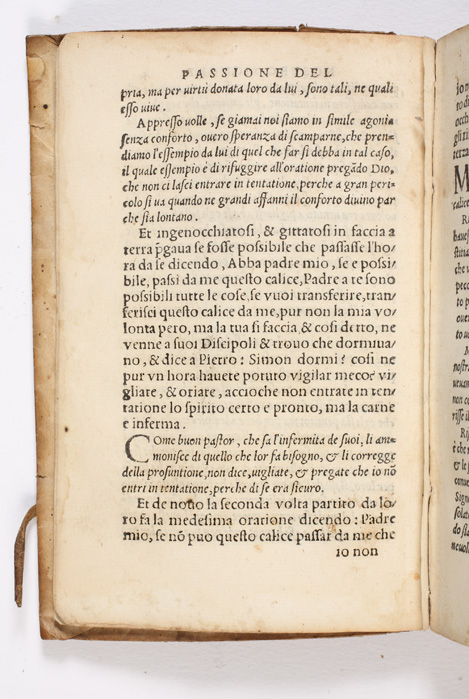 PASSIONE DEL
pria, ma per virtù donata loro da lui, sono tali, ne quali
esso uiue.
Appresso uolle, se giamai noi siamo in simile agonia
senza conforto, ouero speranza di scamparne, che pren-
diamo l'essempio da lui di quel che far si debba in tal caso,
il quale essempio è di rifuggire all'oratione pregãdo Dio,
che non ci lasci entrare in tentatione, perche a gran peri-
colo si ua quando ne grandi affanni il conforto diuino par
che sia lontano.
Et ingenocchiatosi, & gittatosi in faccia a
terra p̃gaua se fosse possibile che passasse l'ho/
ra da se dicendo, Abba padre mio, se e possi/
bile, passi da me questo calice, Padre a te sono
possibili tutte le cose, se vuoi transferire, tran/
ferisci questo calice da me, pur non la mia vo/
lonta pero, ma la tua si faccia, & cosi detto, ne
venne a suoi Discipoli & trouo che dormiua/
no, & dice a Pietro: Simon dormi? cosi ne
pur vn hora hauete potuto vigilar meco? vi/
gliate, & oriate, accioche non entrate in ten/
tatione lo spirito certo e pronto, ma la carne
e inferma.
Come buon pastor, che sa l'infermita de suoi, li am-
monisce di quello che lor fa bisogno, & li corregge
della prosuntione, non dice, uigliate, & pregate che io nõ
entri in tentatione, perche di se era sicuro.
Et de nouo la seconda volta partito da lo/
ro fa la medesima oratione dicendo: Padre
mio, se nõ puo questo calice passar da me che
io non